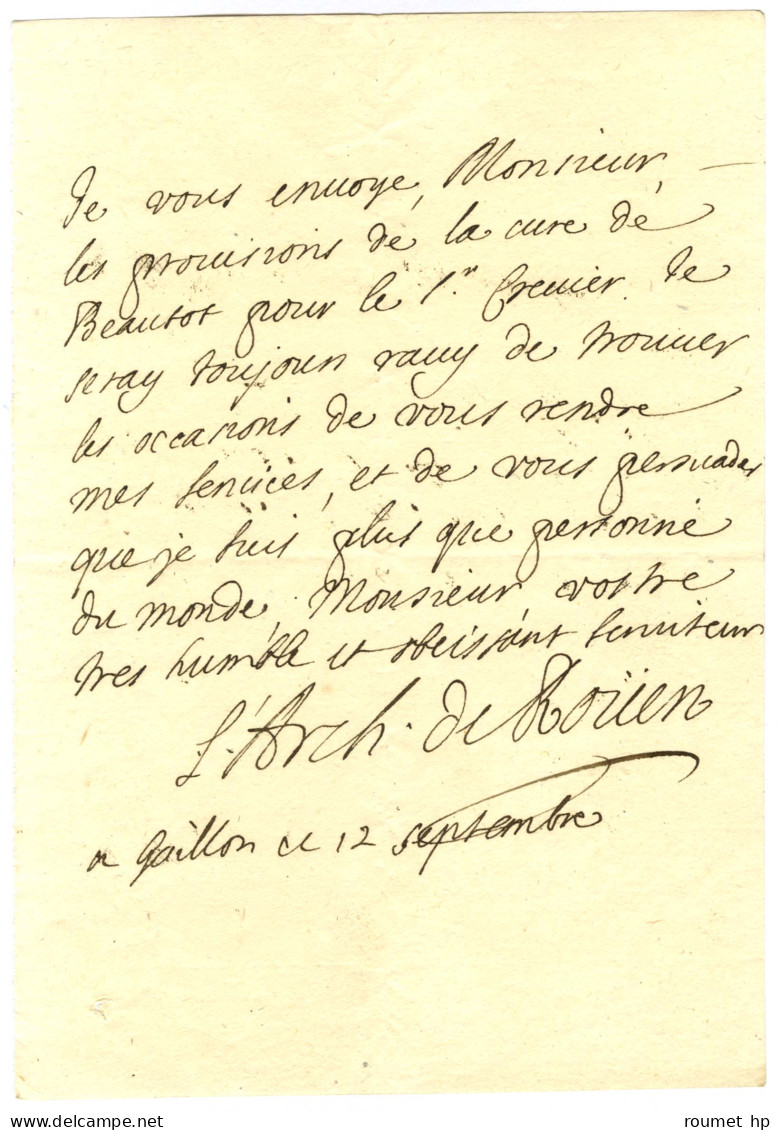 Je vous envoye, Monsieur, —
les provisions de la cure de
Beautot pour le Sr. Crevier. Je
seray toujours ravy de trouver
les occasions de vous rendre
mes services, et de vous persuader
que je suis plus que personne
du monde, Monsieur, vostre
tres humble et obeissant serviteur
L'Arch. de Roüen
a Gaillon ce 12 septembre
delcampe.net
roumet hp